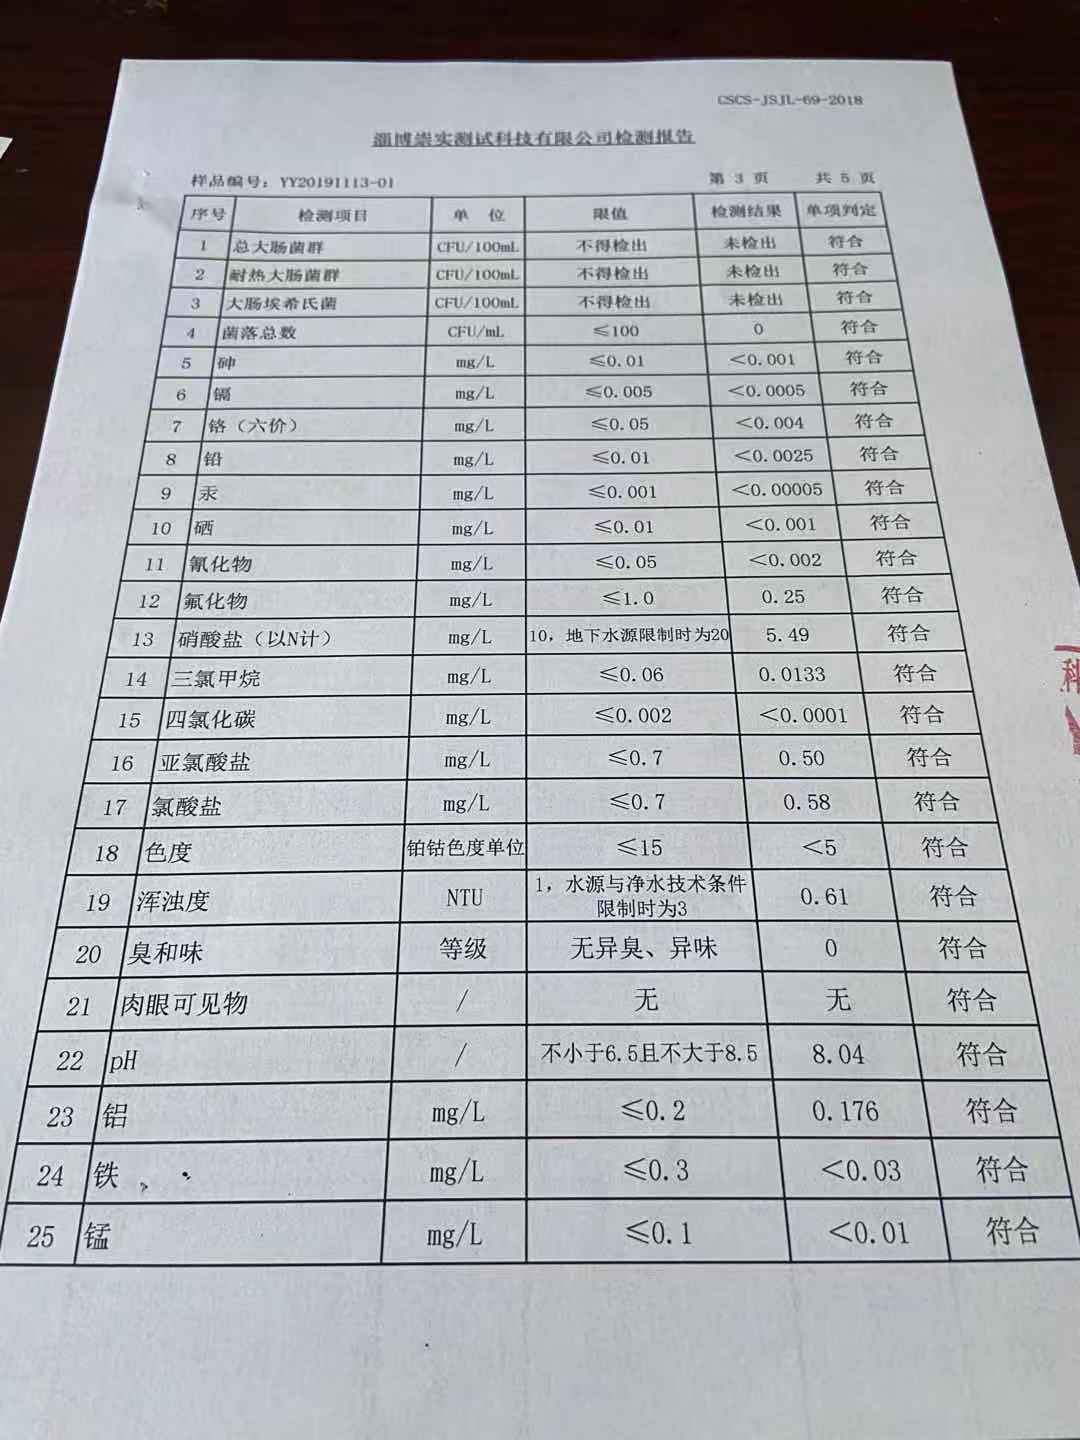 CSCS-JSJL-69-2018
淄博崇实测试科技有限公司检测报告
样品编号：YY20191113-01 第 3 页 共 5 页
序号 检测项目 单 位 限值 检测结果 单项判定
1 总大肠菌群 CFU/100mL 不得检出 未检出 符合
2 耐热大肠菌群 CFU/100mL 不得检出 未检出 符合
3 大肠埃希氏菌 CFU/100mL 不得检出 未检出 符合
4 菌落总数 CFU/mL ≤100 0 符合
5 砷 mg/L ≤0.01 <0.001 符合
6 镉 mg/L ≤0.005 <0.0005 符合
7 铬（六价） mg/L ≤0.05 <0.004 符合
8 铅 mg/L ≤0.01 <0.0025 符合
9 汞 mg/L ≤0.001 <0.00005 符合
10 硒 mg/L ≤0.01 <0.001 符合
11 氰化物 mg/L ≤0.05 <0.002 符合
12 氟化物 mg/L ≤1.0 0.25 符合
13 硝酸盐（以N计） mg/L 10，地下水源限制时为20 5.49 符合
14 三氯甲烷 mg/L ≤0.06 0.0133 符合
15 四氯化碳 mg/L ≤0.002 <0.0001 符合
16 亚氯酸盐 mg/L ≤0.7 0.50 符合
17 氯酸盐 mg/L ≤0.7 0.58 符合
18 色度 铂钴色度单位 ≤15 <5 符合
19 浑浊度 NTU 1，水源与净水技术条件
限制时为3 0.61 符合
20 臭和味 等级 无异臭、异味 0 符合
21 肉眼可见物 / 无 无 符合
22 pH / 不小于6.5且不大于8.5 8.04 符合
23 铝 mg/L ≤0.2 0.176 符合
24 铁 mg/L ≤0.3 <0.03 符合
25 锰 mg/L ≤0.1 <0.01 符合
科